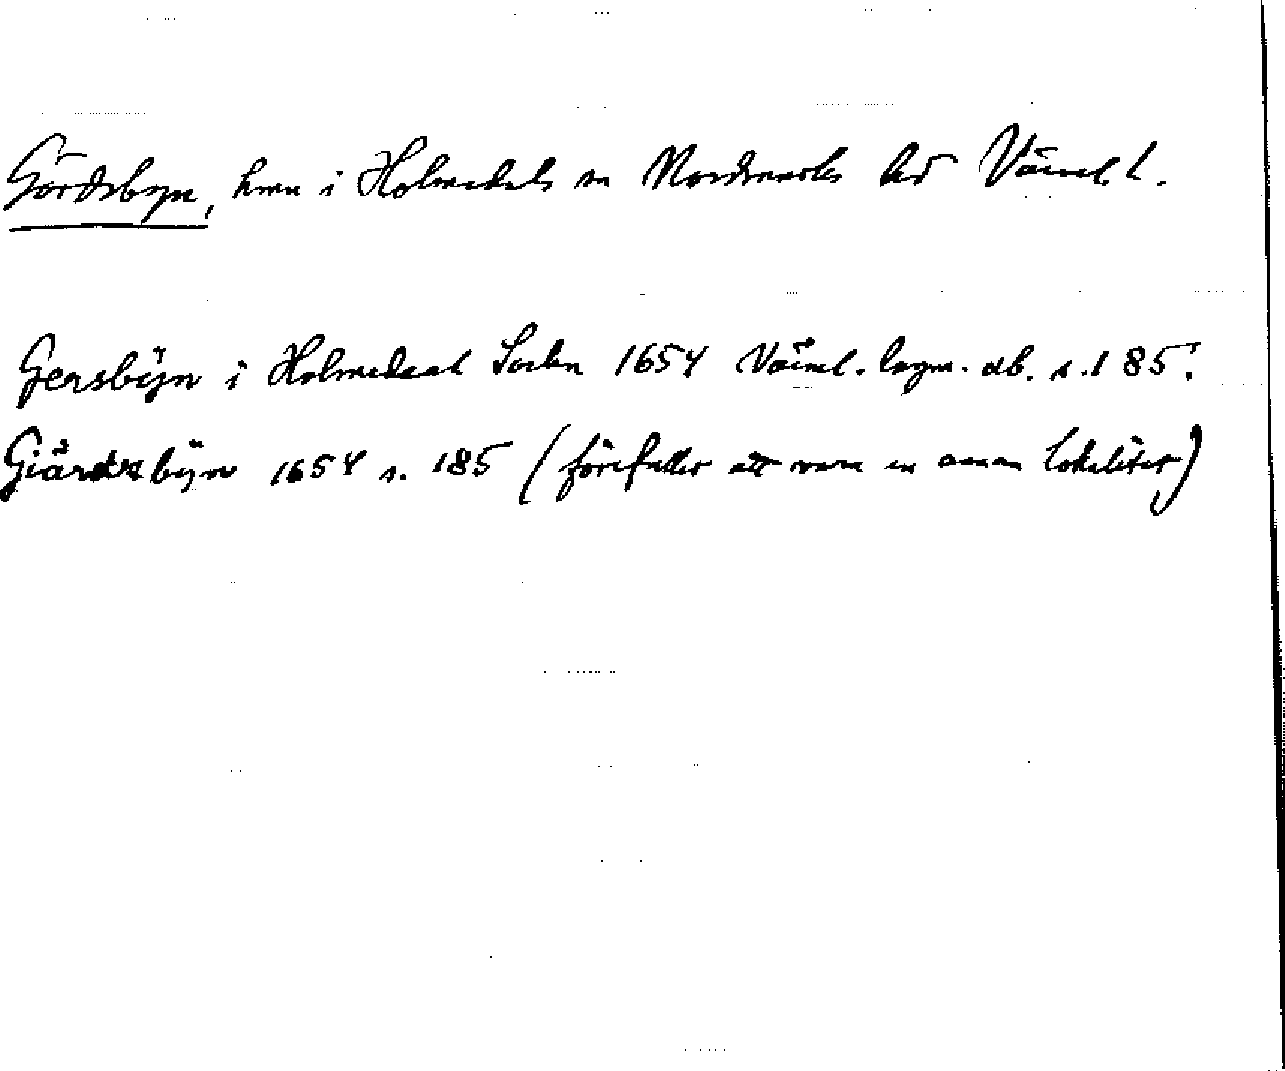 Gördsbyn, hmn i Holmedals sn Nordmarks hd Värml. l.
Gersbÿn i Holmedaal Sochn 1654 Värml. lagm. db. s. 185.
Giärdzbÿn 1654 s. 185 (förefaller att vara en annan lokalitet)